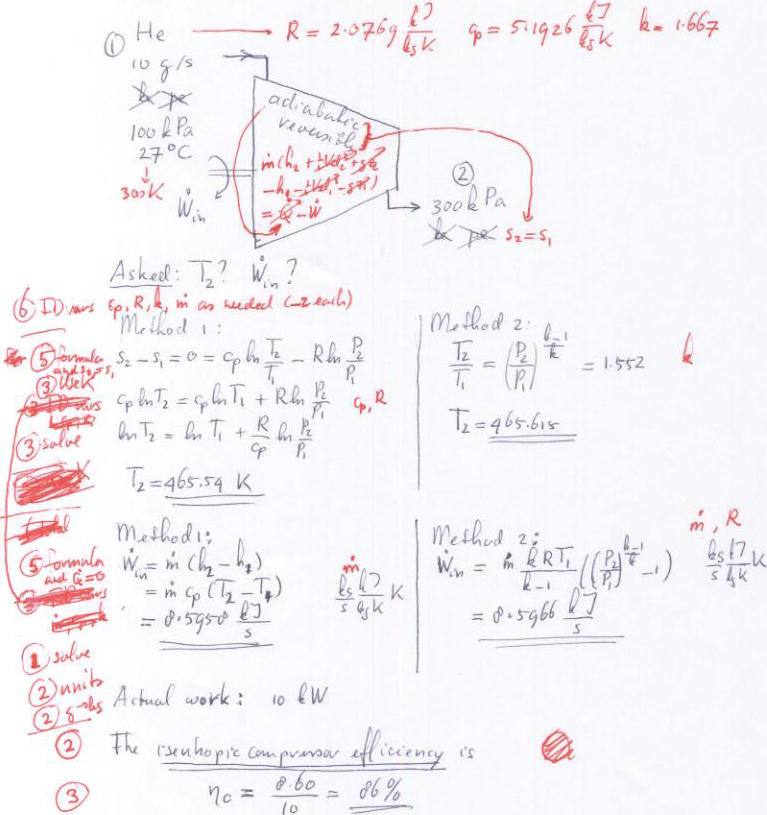 ① He → R = 2.0769 kJ/kg K cp = 5.1926 kJ/kg K k = 1.667
10 g/s
ke pe
100 kPa
27°C
300K
Ẇin
adiabatic
reversible
ṁ(h2 + ½Vel2² + gz2
-h1 - ½Vel1² - gz1)
= Q̇ - Ẇ
②
300 kPa
ke pe s2 = s1
Asked: T2? Ẇin?
⑥ ID vars cp, R, k, ṁ as needed (-2 each)
Method 1:
⑤ formula and s2=s1
s2 - s1 = 0 = cp ln T2/T1 - R ln P2/P1
③ Use K
cp ln T2 = cp ln T1 + R ln P2/P1 cp, R
③ solve
ln T2 = ln T1 + R/cp ln P2/P1
T2 = 465.54 K
Method 2:
T2/T1 = (P2/P1)^((k-1)/k) = 1.552 k
T2 = 465.615
Method 1:
⑤ formula and Q̇=0
Ẇin = ṁ (h2 - h1) ṁ
= ṁ cp (T2 - T1) kg/s kJ/kg K K
= 8.5958 kJ/s
Method 2: ṁ, R
Ẇin = ṁ k R T1/(k-1) ((P2/P1)^((k-1)/k) - 1) kg/s kJ/kg K K
= 8.5966 kJ/s
① solve
② units
② g→kg
Actual work: 10 kW
② The isentropic compressor efficiency is
③ ηc = 8.60/10 = 86%